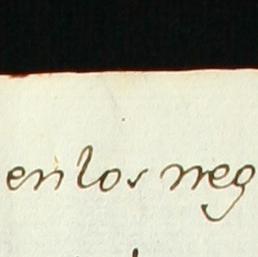 en los neg